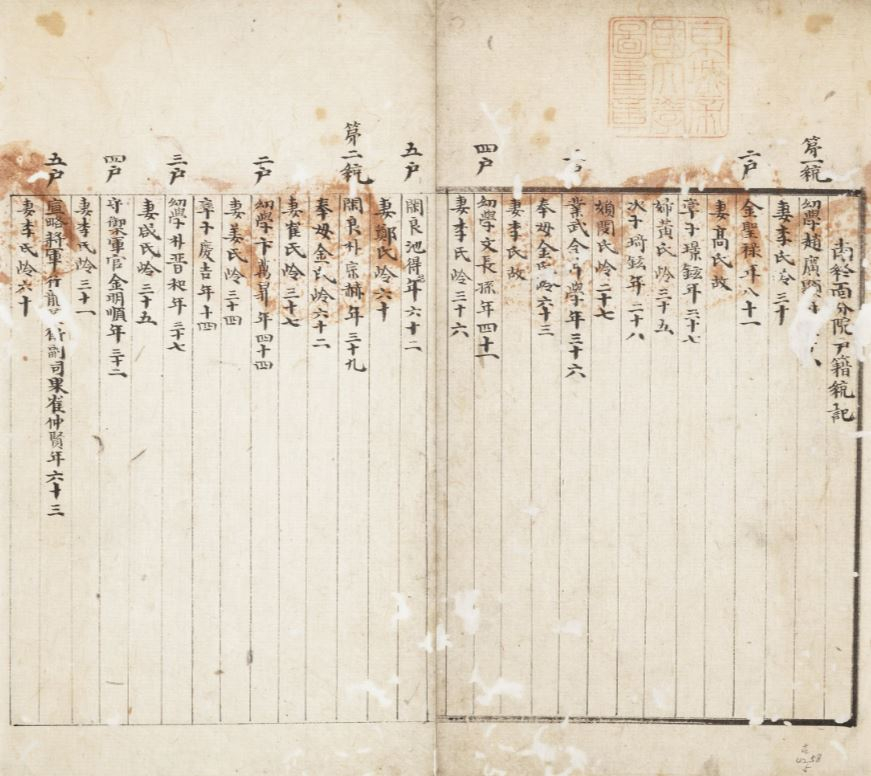 南終面分院戶籍統記
第一統
幼學趙廣顯
妻李氏齡三十
二戶
金聖祿年八十一
妻高氏故
率子璟鉉年三十七
婦黃氏齡三十五
次子琦鉉年二十八
婦閔氏齡二十七
業武金 學年三十六
奉母金氏齡六十三
妻李氏故
四戶
幼學文長孫年四十一
妻李氏齡三十六
五戶
閑良池得 年六十二
妻鄭氏齡六十
第二統
閑良朴宗赫年三十九
奉母金氏齡六十二
妻崔氏齡三十七
二戶
幼學卞萬昇年四十四
妻姜氏齡三十四
率子慶吉年十四
三戶
幼學朴晋和年三十七
妻成氏齡三十五
四戶
守禦軍官金明順年三十二
妻李氏齡三十一
五戶
宣略將軍行龍 衛副司果崔仲賢年六十三
妻李氏齡六十
京城帝國大學圖書章